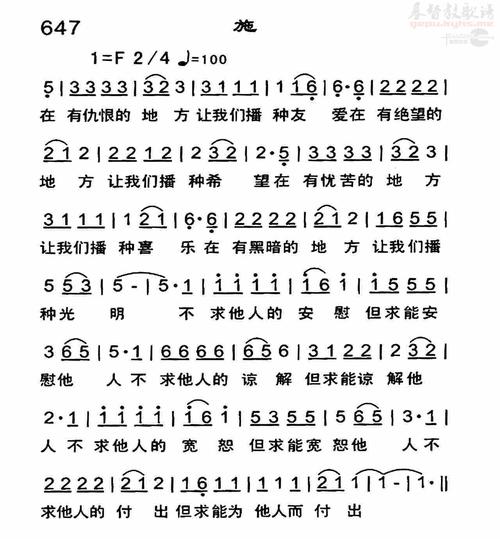 基督教歌谱
647 施
1=F 2/4 ♩=100
5|3 3 3 3|3 2 3|3 1 1 1|1 1 6|6·6|2 2 2 2|
在 有仇恨的 地 方 让我们播 种友 爱在 有绝望的
2 1 2|2 1 1 1|2 3 2|2·5|3 3 3 3|3 2 3|
地 方 让我们播 种希 望在 有忧苦的 地 方
3 1 1 1|1 2 1|6·6|2 2 2 2|2 1 2|1 6 5 5|
让我们播 种喜 乐在 有黑暗的 地 方 让我们播
5 5 3|5-|5·1|1 1 1 1|1 1 1|1 5 5 5|
种光 明 不 求他人的 安 慰 但求能安
3 6 5|5·1|6 6 6 6|6 5 6|3 1 2 2|2 3 2|
慰他 人不 求他人的 谅 解 但求能谅 解他
2·1|1 1 1 1|1 6 1|5 3 5 5|5 6 5|3·1|
人不 求他人的 宽 恕 但求能宽 恕他 人不
2 2 2 2|2 1 2|1 6 1 1|1 2 1 2|1-|1·‖
求他人的 付 出但求能为 他人而 付 出